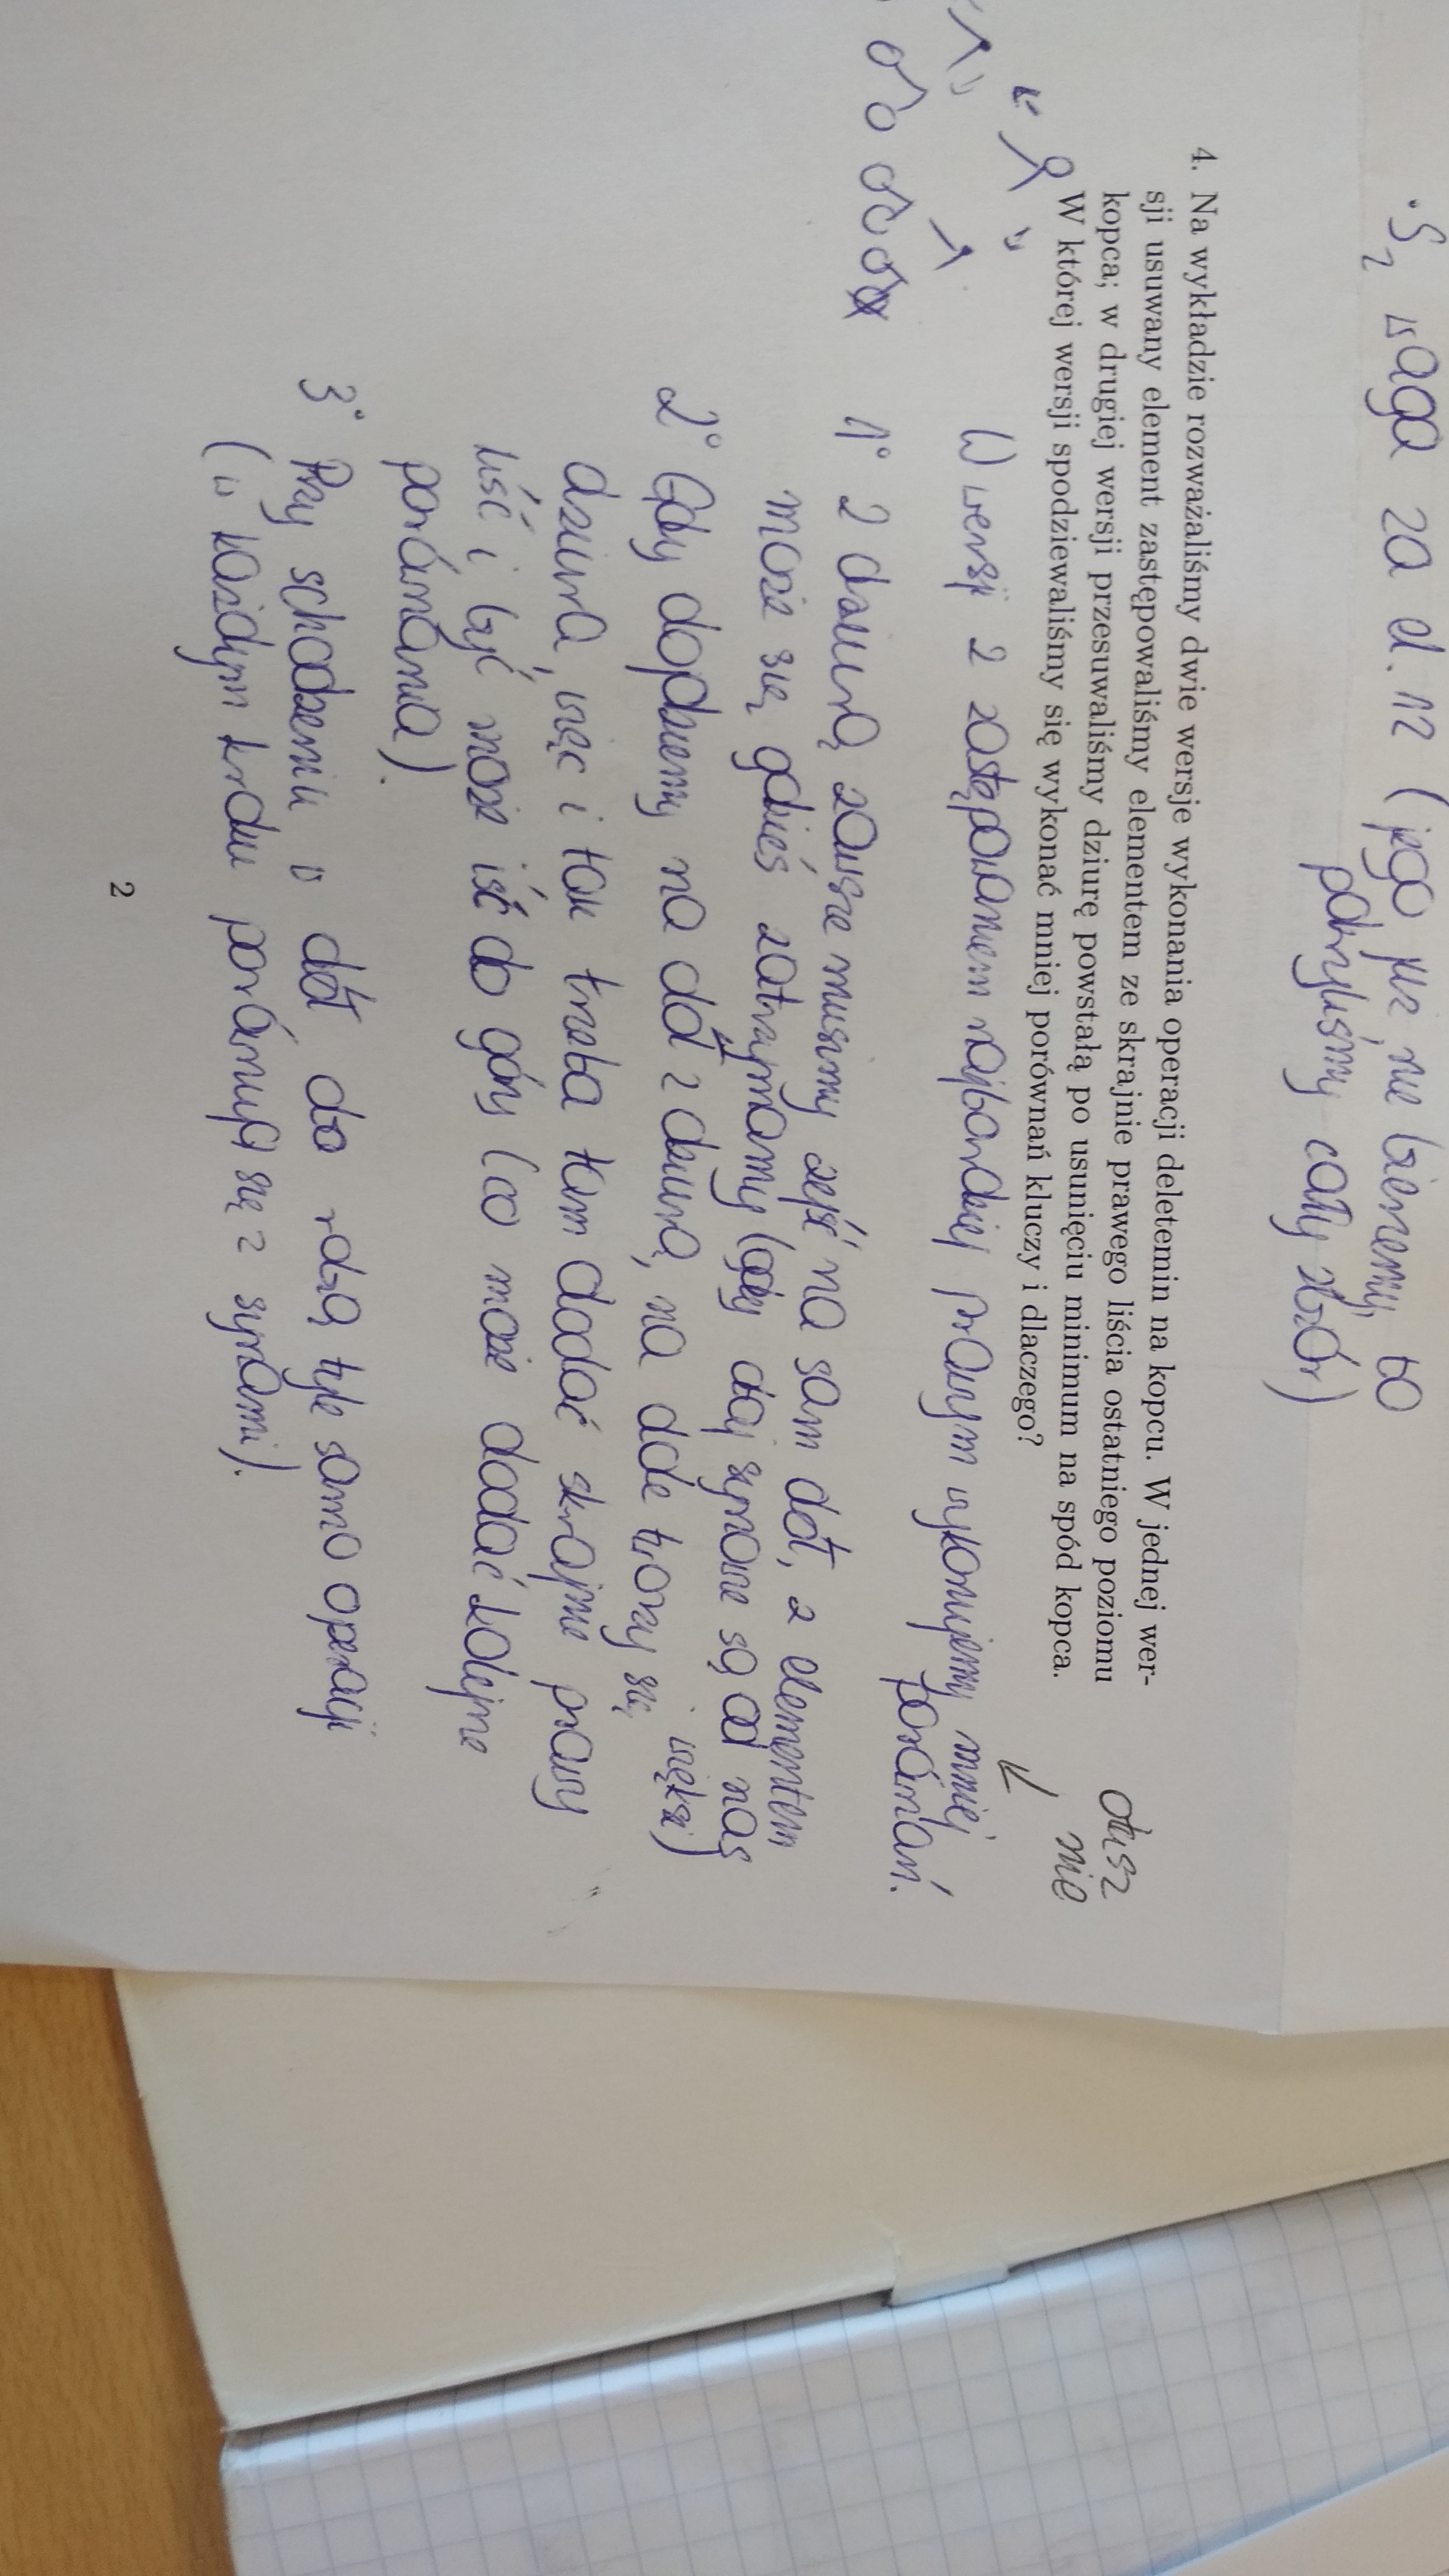 ·S₂ waga za el. 12 (jego już nie bierzemy, bo
pokryliśmy cały zbiór)
4. Na wykładzie rozważaliśmy dwie wersje wykonania operacji deletemin na kopcu. W jednej wer-
sji usuwany element zastępowaliśmy elementem ze skrajnie prawego liścia ostatniego poziomu
kopca; w drugiej wersji przesuwaliśmy dziurę powstałą po usunięciu minimum na spód kopca.
W której wersji spodziewaliśmy się wykonać mniej porównań kluczy i dlaczego?
otusz
nie
W wersji z zastępowaniem najbardziej prawym wykonujemy mniej
porównań.
1° Z dziurą zawsze musimy zejść na sam dół, z elementem
może się gdzieś zatrzymamy (gdy obaj synowie są od nas
więksi)
2° Gdy dojdziemy na dół z dziurą, na dole tworzy się
dziura, więc i tak trzeba tam dodać skrajnie prawy
liść i być może iść do góry (co może dodać kolejne
porównania).
3° Przy schodzeniu w dół oba robią tyle samo operacji
(w każdym kroku porównują się z synami).
2